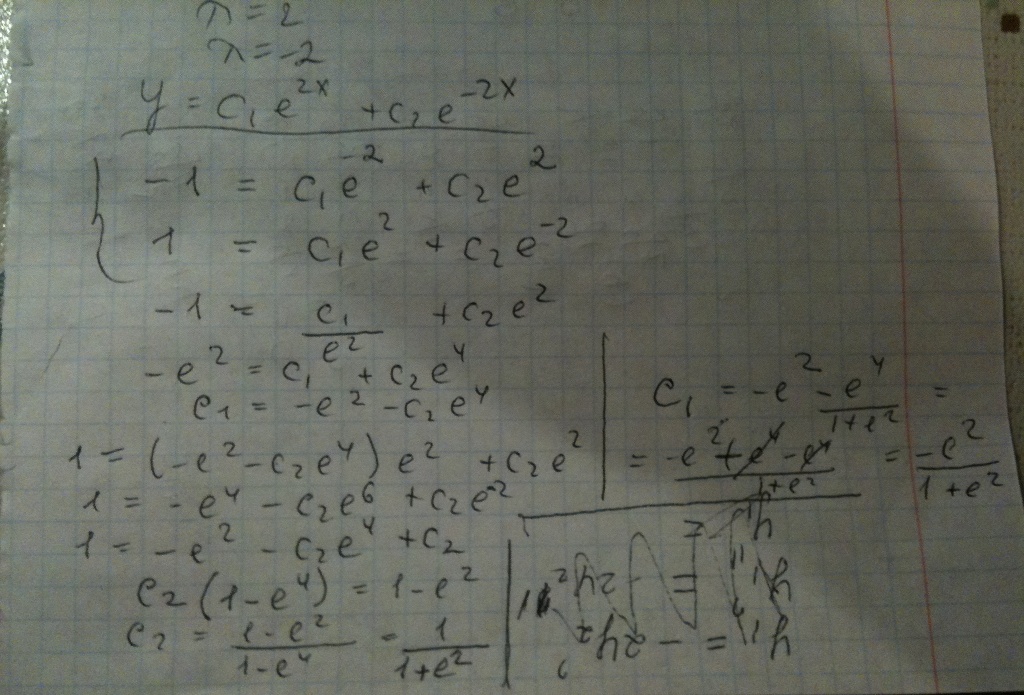 λ = 2
λ = -2
y = c₁e^{2x} + c₂e^{-2x}
{ -1 = c₁e^{-2} + c₂e^{2}
1 = c₁e^{2} + c₂e^{-2}
-1 = c₁/e² + c₂e²
-e² = c₁ + c₂e⁴
c₁ = -e² - c₂e⁴
1 = (-e² - c₂e⁴) e² + c₂e²
1 = -e⁴ - c₂e⁶ + c₂e^{-2}
1 = -e² - c₂e⁴ + c₂
c₂(1-e⁴) = 1-e²
c₂ = (1-e²)/(1-e⁴) = 1/(1+e²)
c₁ = -e² - e⁴/(1+e²) =
= (-e² + e⁴ - e⁴)/(1+e²) = -e²/(1+e²)